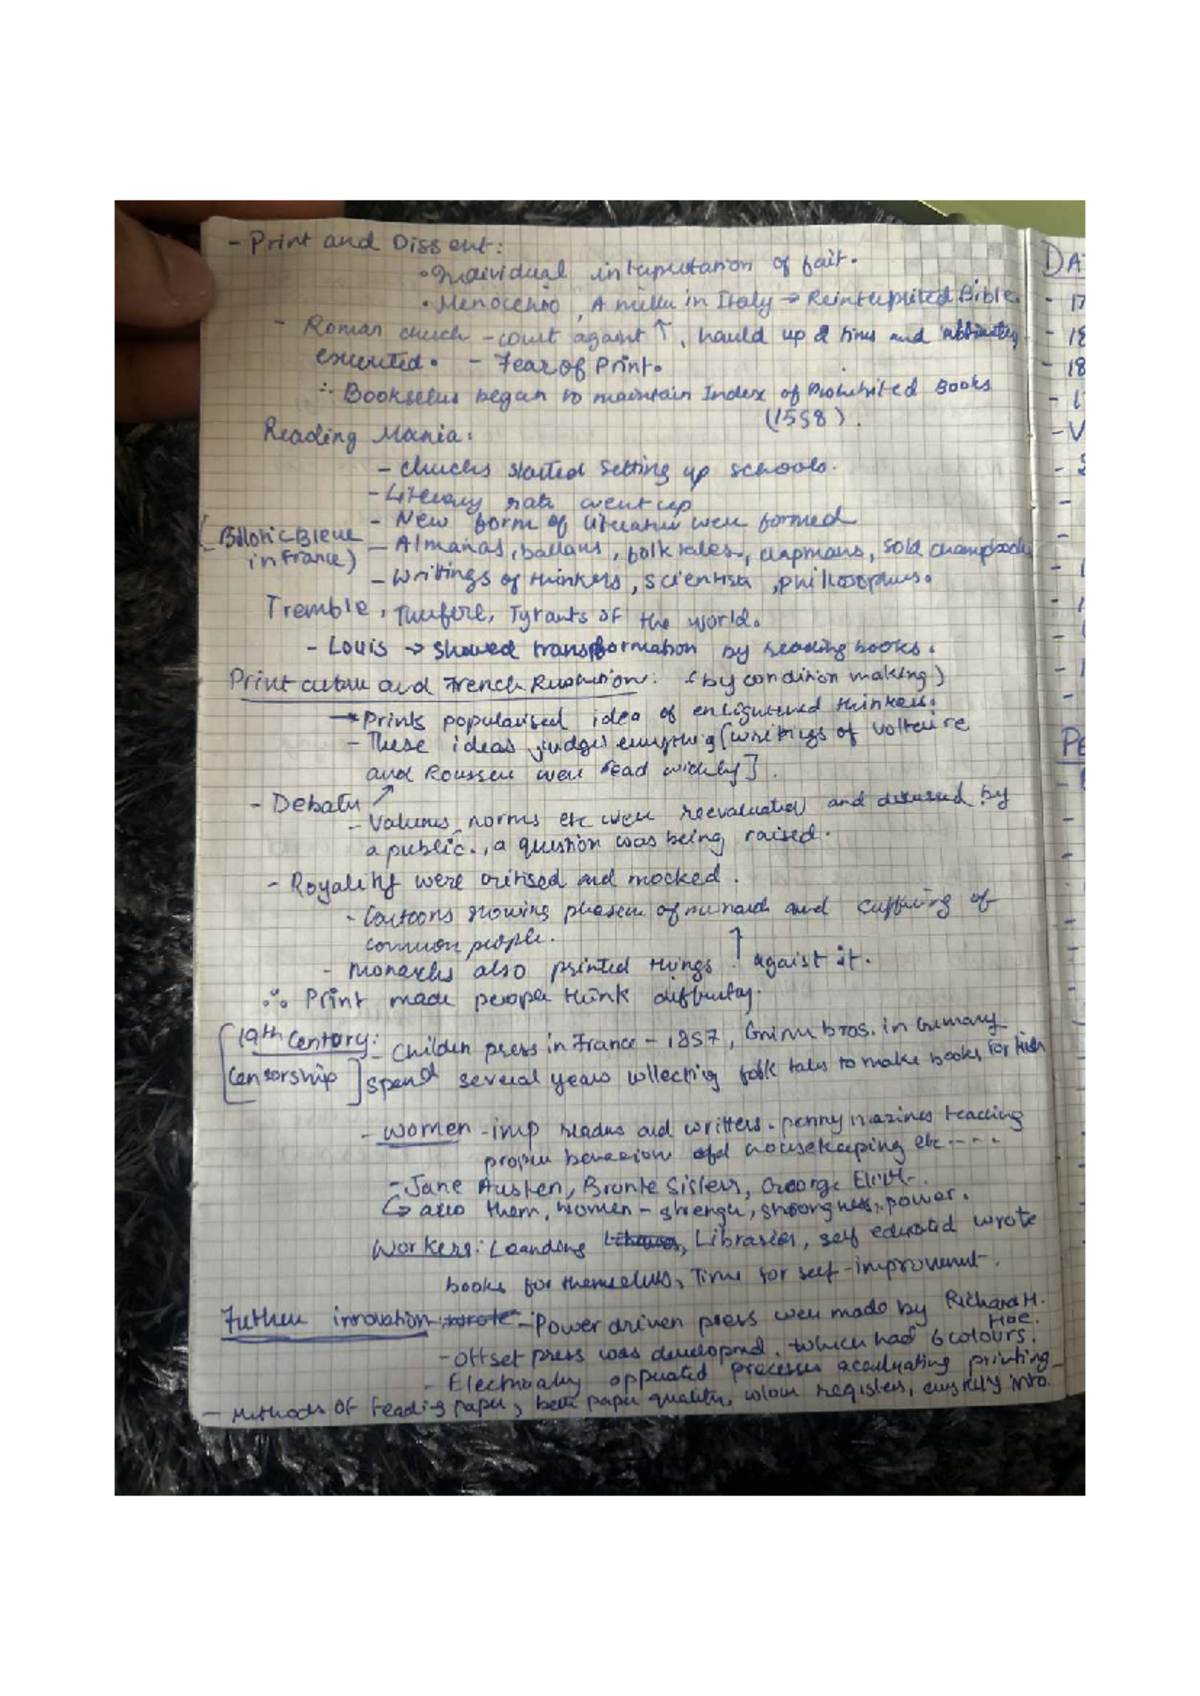 - Print and Dissent:
• Individual interpretation of fait.
• Menocchio, A miller in Italy → Reinterpreted Bible.
- Roman church - court against ↑, hauld up 2 times and
executed. - Fear of Print.
∴ Booksellers began to maintain Index of Prohibited Books
(1558).
Reading Mania:
- churches started setting up schools.
- Literacy rate went up
- New form of literature were formed
[Billotic Bleue
in France)
- Almanas, ballans, folk tales, chapmans, sold champbooks
- writings of thinkers, scientists, philosophers.
Tremble, Therefore, Tyrants of the world.
- Louis → showed transformation by reading books.
Print culture and French Revolution: (by condition making)
→ Prints popularised idea of enlightened thinkers.
- These ideas judges everything [writings of voltaire
and Rousseu were read widely].
- Debate ↗
- Values, norms etc were reevaluated and discussed by
a public., a question was being raised.
- Royality were critised and mocked.
- Cartoons showing of monarch and suffering of
common people.
- monarchs also printed things ↑ agaist it.
∴ Print made people think differently.
[19th Century:
Censorship]
- Children press in France - 1857, Grimm bros. in Germany
spend several years collecting folk tales to make books for
- Women - imp readers and writers. penny mazines teaching
proper behaveiour and housekeeping etc ----
- Jane Austen, Bronte Sisters, George Eliot-.
↳ them, women - strength, power.
Workers: Leanding Libraries, self educated wrote
books for themselves, Time for self-improvement.
Further innovation - Power driven press were made by Richard M.
Hoe.
- offset press was developed. which had 6 colours.
- Electrically operated processes accelerating printing
- Methods of feading paper, better paper quality, colour registers,
DA
PE